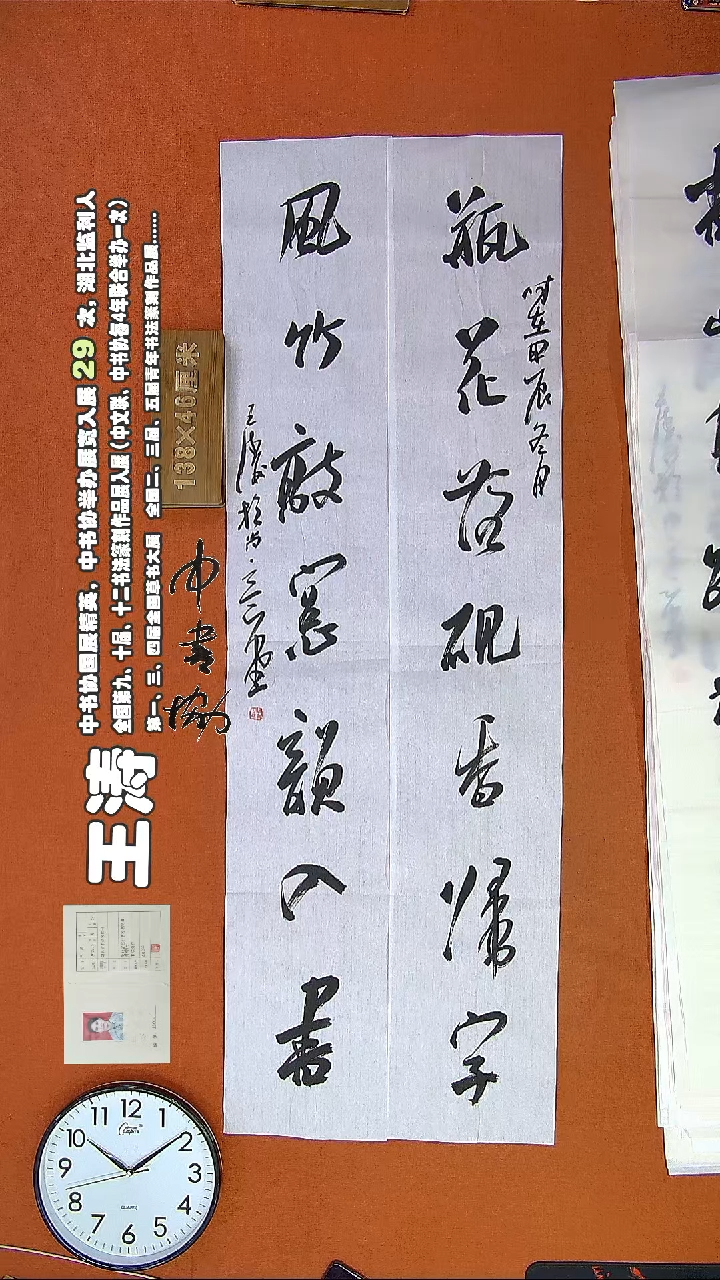 瓶花落砚香归字
时在甲辰冬月
风竹敲窗韵入书
王涛
中书协国展精英，中书协举办展览入展 29 次，湖北监利人
全国第九、十届、十二书法篆刻作品展入展（中文联、中书协每4年联合举办一次）
第一、三、四届全国草书大展 全国二、三届、五届青年书法篆刻作品展......
王涛
138×46厘米
中书协
12
1
2
3
4
5
6
7
8
9
10
11
QUARTZ